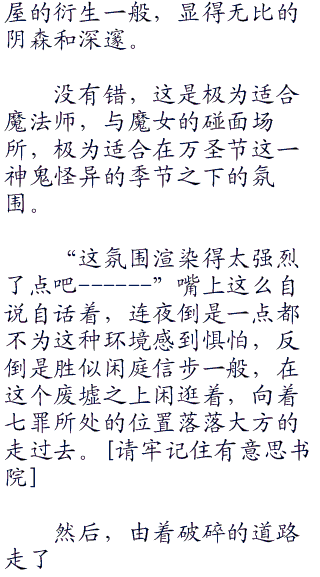 屋的衍生一般，显得无比的
阴森和深邃。
没有错，这是极为适合
魔法师，与魔女的碰面场
所，极为适合在万圣节这一
神鬼怪异的季节之下的氛
围。
“这氛围渲染得太强烈
了点吧------”嘴上这么自
说自话着，连夜倒是一点都
不为这种环境感到惧怕，反
倒是胜似闲庭信步一般，在
这个废墟之上闲逛着，向着
七罪所处的位置落落大方的
走过去。[请牢记住有意思书
院]
然后，由着破碎的道路
走了